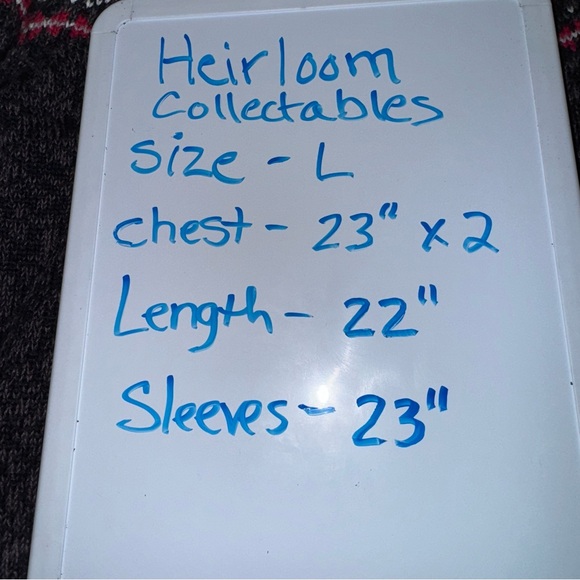 Heirloom
Collectables
Size - L
Chest - 23" x 2
Length - 22"
Sleeves - 23"